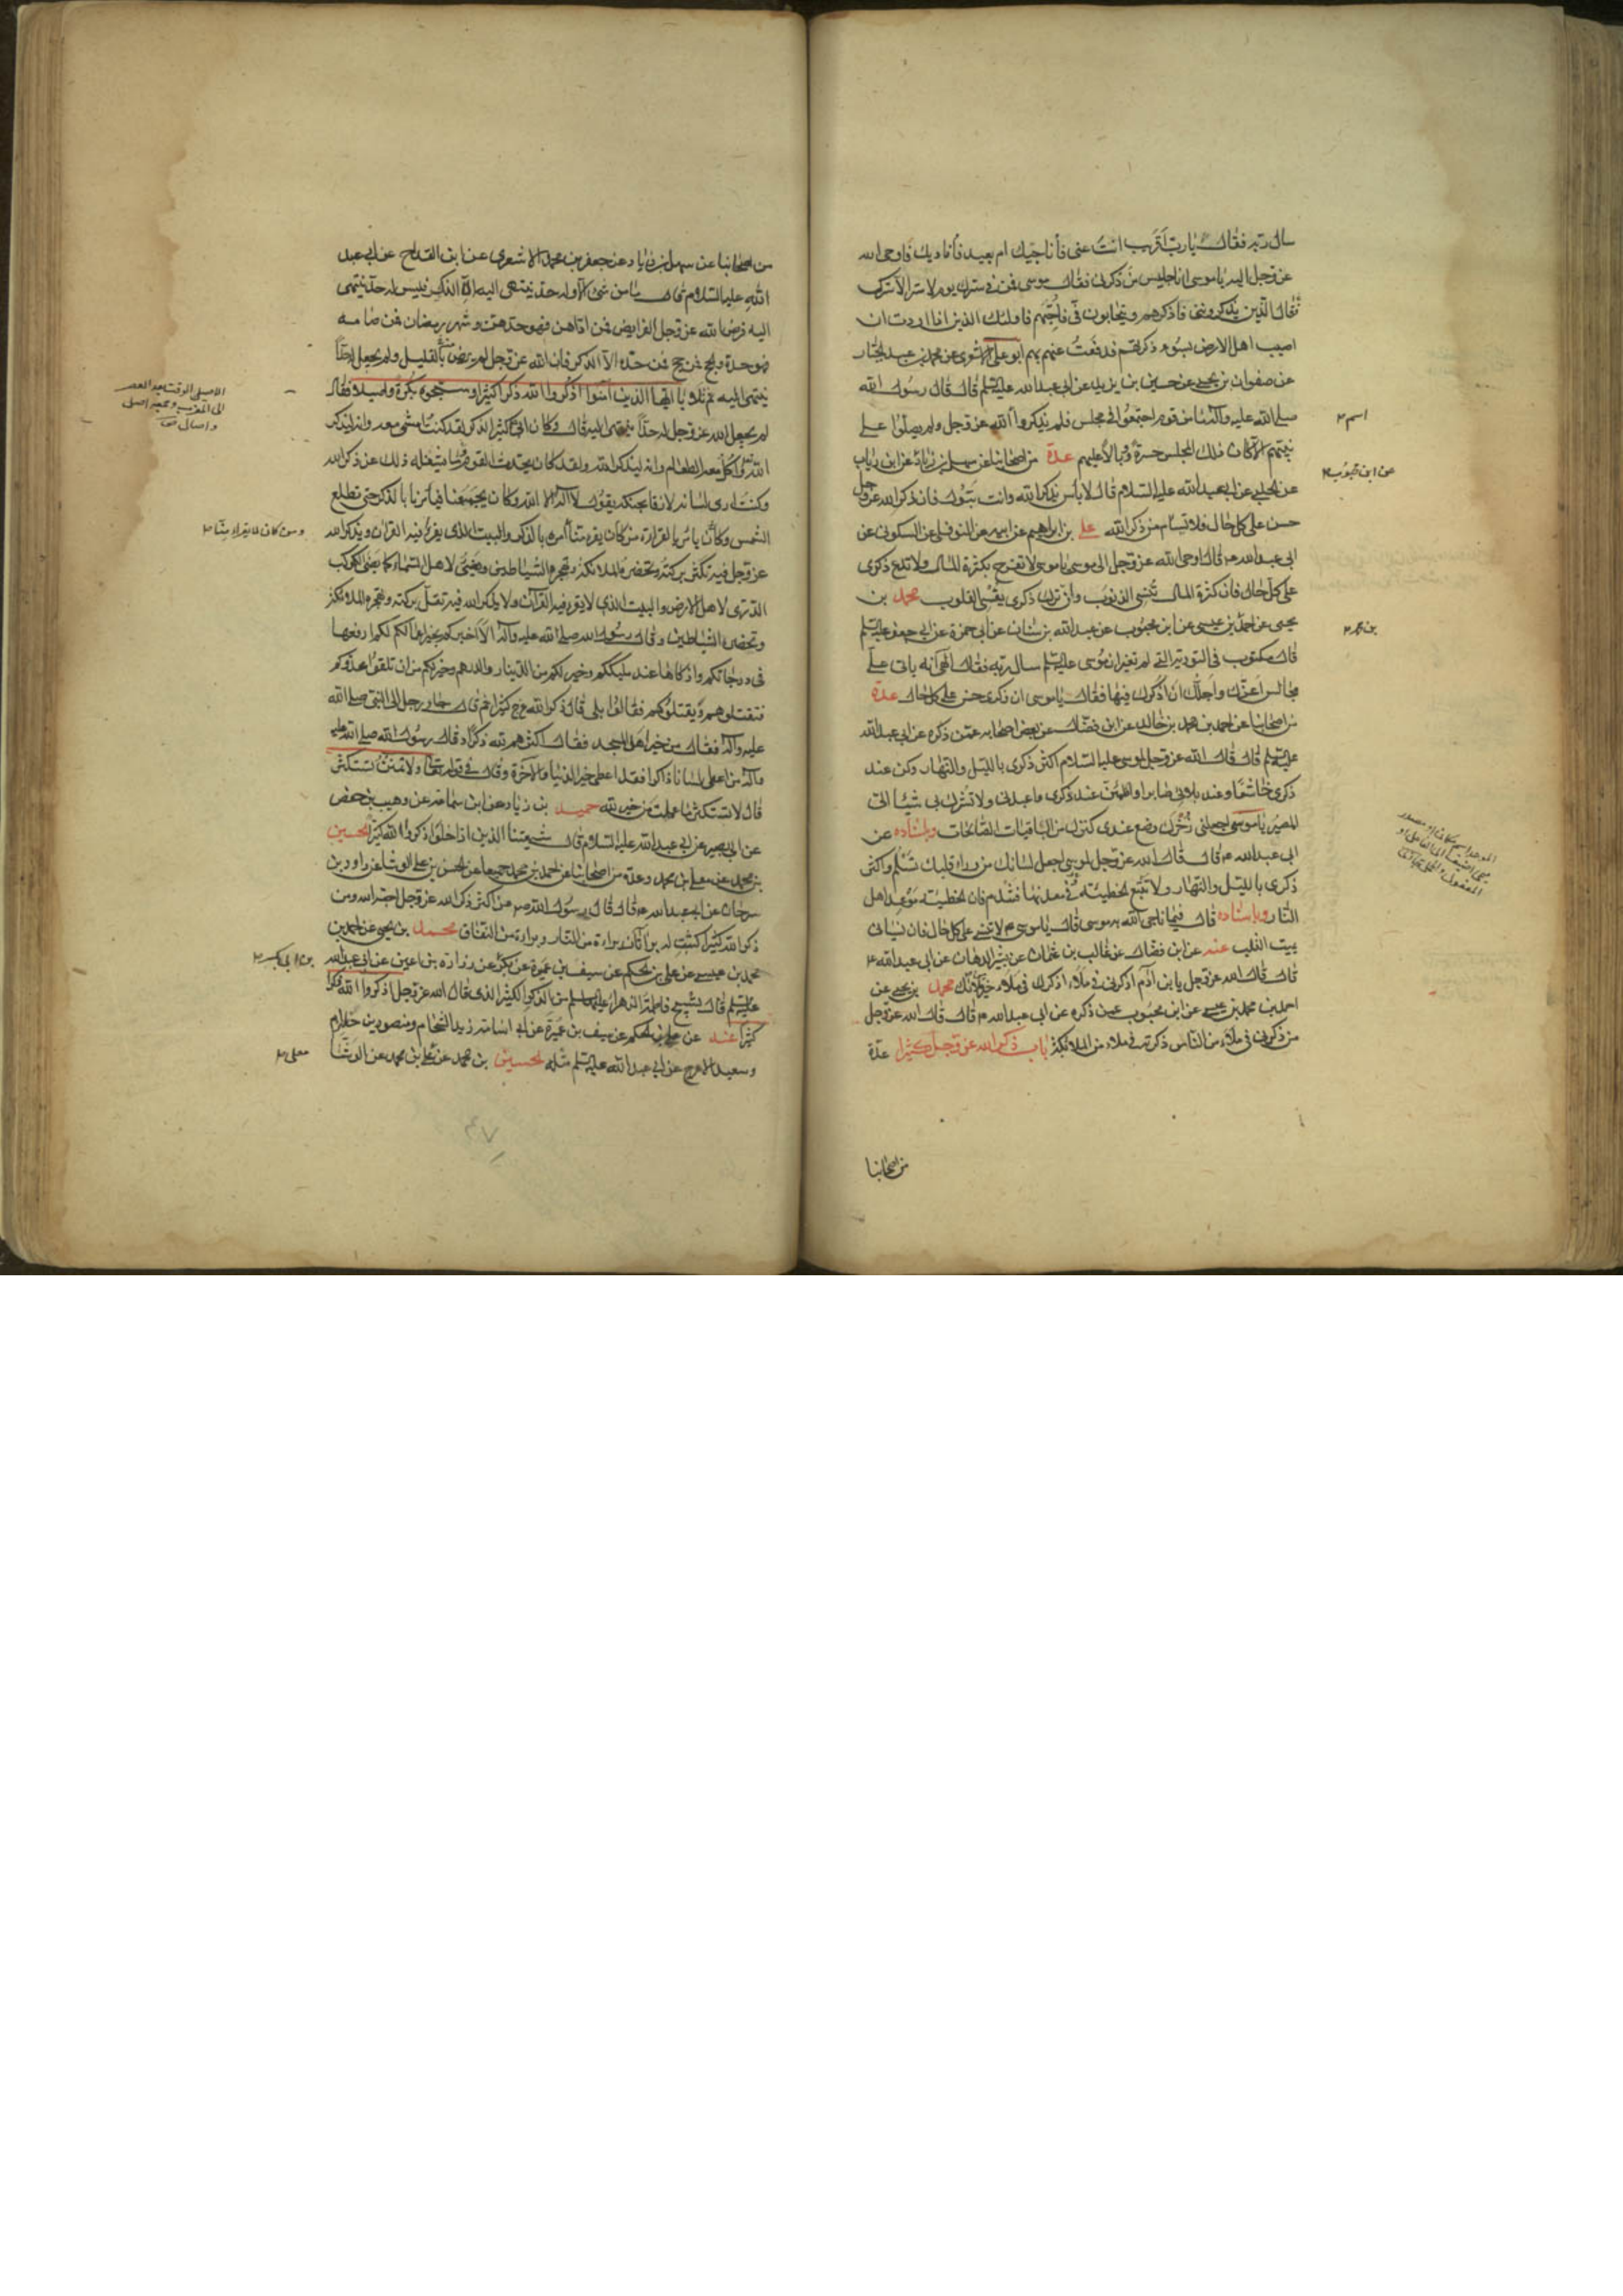 سال ربه فقال يا رب اقريب انت عنى فأناجيك ام بعيد فأناديك فاوحى الله
عز وجل اليه يا موسى انا جليس من ذكرنى فقال موسى فمن فى سترك يوم لا ستر الا سترك
فقال الذين يذكروننى فاذكرهم ويتحابون فىّ فاحبّهم فاولئك الذين اذا اردت ان
اصيب اهل الارض بسوء ذكرتهم فدفعت عنهم بهم ابو على الاشعرى عن محمد بن عبد الجبار
عن صفوان بن يحيى عن حسين بن يزيد عن ابى عبد الله عليه السلم قال قال رسول الله
صلى الله عليه واله ما من قوم اجتمعوا فى مجلس فلم يذكروا الله عز وجل ولم يصلوا على
نبيّهم الا كان ذلك المجلس حسرة ووبالا عليهم عدة من اصحابنا عن سهل بن زياد عن ابن رياب
عن الحلبى عن ابى عبد الله عليه السلام قال لا بأس بذكر الله وانت تبول فان ذكر الله عز وجل
حسن على كل حال فلا تسأم من ذكر الله على بن ابراهيم عن ابيه عن النوفلى عن السكونى عن
ابى عبد الله ع قال اوحى الله عز وجل الى موسى يا موسى لا تفرح بكثرة المال ولا تدع ذكرى
على كل حال فان كثرة المال تنسى الذنوب وان ترك ذكرى يقسى القلوب محمد بن
يحيى عن احمد بن عيسى عن ابن محبوب عن عبد الله بن سنان عن ابى حمزة عن ابى جعفر عليه السلم
قال مكتوب فى التورية التى لم تغير ان موسى عليه السلم سال ربه فقال الهى انه ياتى علىّ
مجالس اعزّك واجلّك ان اذكرك فيها فقال يا موسى ان ذكرى حسن على كل حال عدة
من اصحابنا عن احمد بن محمد بن خالد عن ابن فضال عن بعض اصحابه عمن ذكره عن ابى عبد الله
عليه السلم قال قال الله عز وجل لموسى عليه السلام اكثر ذكرى بالليل والنهار وكن عند
ذكرى خاشعا وعند بلائى صابرا واطمئن عند ذكرى واعبدنى ولا تشرك بى شيئا الىّ
المصير يا موسى اجعلنى ذخرك وضع عندى كنزك من الباقيات الصالحات وباسناده عن
ابى عبد الله ع قال قال الله عز وجل لموسى اجعل لسانك من وراء قلبك تسلم واكثر
ذكرى بالليل والنهار ولا تتبع الخطيئة فى معدنها فتندم فان الخطيئة موعد اهل
النار وباسناده قال فيما ناجى الله به موسى قال يا موسى لا تنسنى على كل حال فان نسيانى
يميت القلب عنه عن ابن فضال عن غالب بن عثمان عن بشير الدهان عن ابى عبد الله ع
قال قال الله عز وجل يا بن ادم اذكرنى فى ملاء اذكرك فى ملاء خير من ملائك محمد بن يحيى عن
احمد بن محمد بن عيسى عن ابن محبوب عمن ذكره عن ابى عبد الله ع قال قال الله عز وجل
من ذكرنى فى ملاء من الناس ذكرته فى ملاء من الملائكة باب ذكر الله عز وجل كثيرا عدة
من اصحابنا
اسم
عن ابن محبوب
بن محمد
من اصحابنا عن سهل بن زياد عن جعفر بن محمد الاشعرى عن ابن القداح عن ابى عبد
الله عليه السلام قال ما من شئ الا وله حد ينتهى اليه الا الذكر فليس له حد ينتهى
اليه فرض الله عز وجل الفرايض فمن اداهن فهو حدهن وشهر رمضان فمن صامه
فهو حده والحج فمن حج فهو حده الا الذكر فان الله عز وجل لم يرض منه بالقليل ولم يجعل له حدّا
ينتهى اليه ثم تلا يا ايها الذين امنوا اذكروا الله ذكرا كثيرا وسبحوه بكرة واصيلا فقال
لم يجعل الله عز وجل له حدّا ينتهى اليه قال وكان ابى كثير الذكر لقد كنت امشى معه وانه ليذكر
الله واكل معه الطعام وانه ليذكر الله ولقد كان يحدث القوم وما يشغله ذلك عن ذكر الله
وكنت ارى لسانه لازقا بحنكه يقول لا اله الا الله وكان يجمعنا فيأمرنا بالذكر حتى تطلع
الشمس وكان يأمر بالقراءة من كان يقرء منا أمره بالذكر والبيت الذى يقرأ فيه القران ويذكر الله
عز وجل فيه تكثر بركته وتحضره الملائكة وتهجره الشياطين ويضئ لاهل السماء كما يضئ الكوكب
الدرى لاهل الارض والبيت الذى لا يقرء فيه القرآن ولا يذكر الله فيه تقل بركته وتهجره الملائكة
وتحضره الشياطين وقال رسول الله صلى الله عليه واله الا اخبركم بخير اعمالكم لكم ارفعها
فى درجاتكم وازكاها عند مليككم وخير لكم من الدينار والدرهم وخير لكم من ان تلقوا عدوكم
فتقتلوهم ويقتلوكم فقالوا بلى قال ذكر الله عز وجل كثيرا ثم قال جاء رجل الى النبى صلى الله
عليه واله فقال من خير اهل المسجد فقال اكثرهم لله ذكرا وقال رسول الله صلى الله عليه
واله من اعطى لسانا ذاكرا فقد اعطى خير الدنيا والاخرة وقال فى قوله تعالى ولا تمنن تستكثر
قال لا تستكثر ما عملت من خير لله حميد بن زياد عن ابن سماعة عن وهيب بن حفص
عن ابى بصير عن ابى عبد الله عليه السلام قال شيعتنا الذين اذا خلوا ذكروا الله كثيرا الحسين
بن محمد عن معلى بن محمد وعدة من اصحابنا عن احمد بن محمد جميعا عن الحسن بن على الوشاء عن داود بن
سرحان عن ابى عبد الله ع قال قال رسول الله ص من اكثر ذكر الله عز وجل احبه الله ومن
ذكر الله كثيرا كتبت له براءتان براءة من النار وبراءة من النفاق محمد بن يحيى عن احمد بن
محمد بن عيسى عن على بن الحكم عن سيف بن عميرة عن بكر عن زرارة بن اعين عن ابى عبد الله
عليه السلم قال تسبيح فاطمة الزهراء عليها السلم من الذكر الكثير الذى قال الله عز وجل اذكروا الله ذكرا
كثيرا عنه عن على بن الحكم عن سيف بن عميرة عن ابى اسامة زيد الشحام ومنصور بن حازم
وسعيد الاعرج عن ابى عبد الله عليه السلم مثله الحسين بن محمد عن معلى بن محمد عن الوشاء
الاصيل الوقت بعد العصر
الى المغرب وجمعه اصل
واصال
ومن كان لا يقراء منا
بن ابى بكر
معلى
٤٧